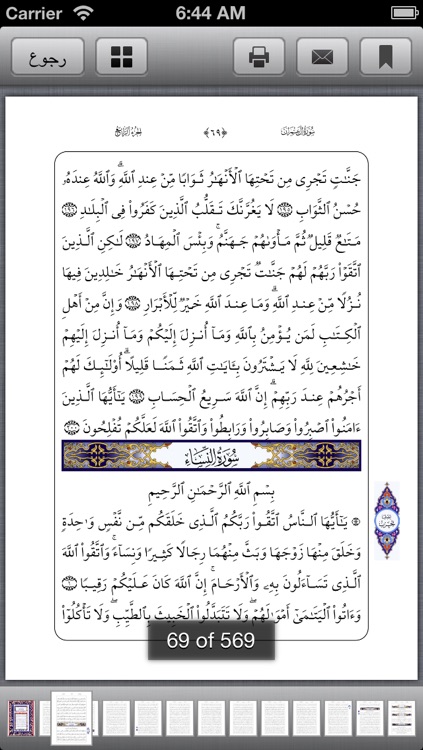 Carrier 6:44 AM
رجوع
سُورَةُ آلِ عِمْرَان ﴿٦٩﴾ الجزء الرابع
جَنَّٰتٍ تَجْرِى مِن تَحْتِهَا ٱلْأَنْهَٰرُ ثَوَابًا مِّنْ عِندِ ٱللَّهِ ۗ وَٱللَّهُ عِندَهُۥ
حُسْنُ ٱلثَّوَابِ ١٩٥ لَا يَغُرَّنَّكَ تَقَلُّبُ ٱلَّذِينَ كَفَرُوا۟ فِى ٱلْبِلَٰدِ ١٩٦
مَتَٰعٌ قَلِيلٌ ثُمَّ مَأْوَىٰهُمْ جَهَنَّمُ ۚ وَبِئْسَ ٱلْمِهَادُ ١٩٧ لَٰكِنِ ٱلَّذِينَ
ٱتَّقَوْا۟ رَبَّهُمْ لَهُمْ جَنَّٰتٌ تَجْرِى مِن تَحْتِهَا ٱلْأَنْهَٰرُ خَٰلِدِينَ فِيهَا
نُزُلًا مِّنْ عِندِ ٱللَّهِ ۗ وَمَا عِندَ ٱللَّهِ خَيْرٌ لِّلْأَبْرَارِ ١٩٨ وَإِنَّ مِنْ أَهْلِ
ٱلْكِتَٰبِ لَمَن يُؤْمِنُ بِٱللَّهِ وَمَآ أُنزِلَ إِلَيْكُمْ وَمَآ أُنزِلَ إِلَيْهِمْ
خَٰشِعِينَ لِلَّهِ لَا يَشْتَرُونَ بِـَٔايَٰتِ ٱللَّهِ ثَمَنًا قَلِيلًا ۗ أُو۟لَٰٓئِكَ لَهُمْ
أَجْرُهُمْ عِندَ رَبِّهِمْ ۗ إِنَّ ٱللَّهَ سَرِيعُ ٱلْحِسَابِ ١٩٩ يَٰٓأَيُّهَا ٱلَّذِينَ
ءَامَنُوا۟ ٱصْبِرُوا۟ وَصَابِرُوا۟ وَرَابِطُوا۟ وَٱتَّقُوا۟ ٱللَّهَ لَعَلَّكُمْ تُفْلِحُونَ ٢٠٠
سُورَةُ النِّسَاءِ
بِسْمِ ٱللَّهِ ٱلرَّحْمَٰنِ ٱلرَّحِيمِ
يَٰٓأَيُّهَا ٱلنَّاسُ ٱتَّقُوا۟ رَبَّكُمُ ٱلَّذِى خَلَقَكُم مِّن نَّفْسٍ وَٰحِدَةٍ
وَخَلَقَ مِنْهَا زَوْجَهَا وَبَثَّ مِنْهُمَا رِجَالًا كَثِيرًا وَنِسَآءً ۚ وَٱتَّقُوا۟ ٱللَّهَ
ٱلَّذِى تَسَآءَلُونَ بِهِۦ وَٱلْأَرْحَامَ ۚ إِنَّ ٱللَّهَ كَانَ عَلَيْكُمْ رَقِيبًا ١
وَءَاتُوا۟ ٱلْيَتَٰمَىٰٓ أَمْوَٰلَهُمْ ۖ وَلَا تَتَبَدَّلُوا۟ ٱلْخَبِيثَ بِٱلطَّيِّبِ ۖ وَلَا تَأْكُلُوٓا۟
69 of 569